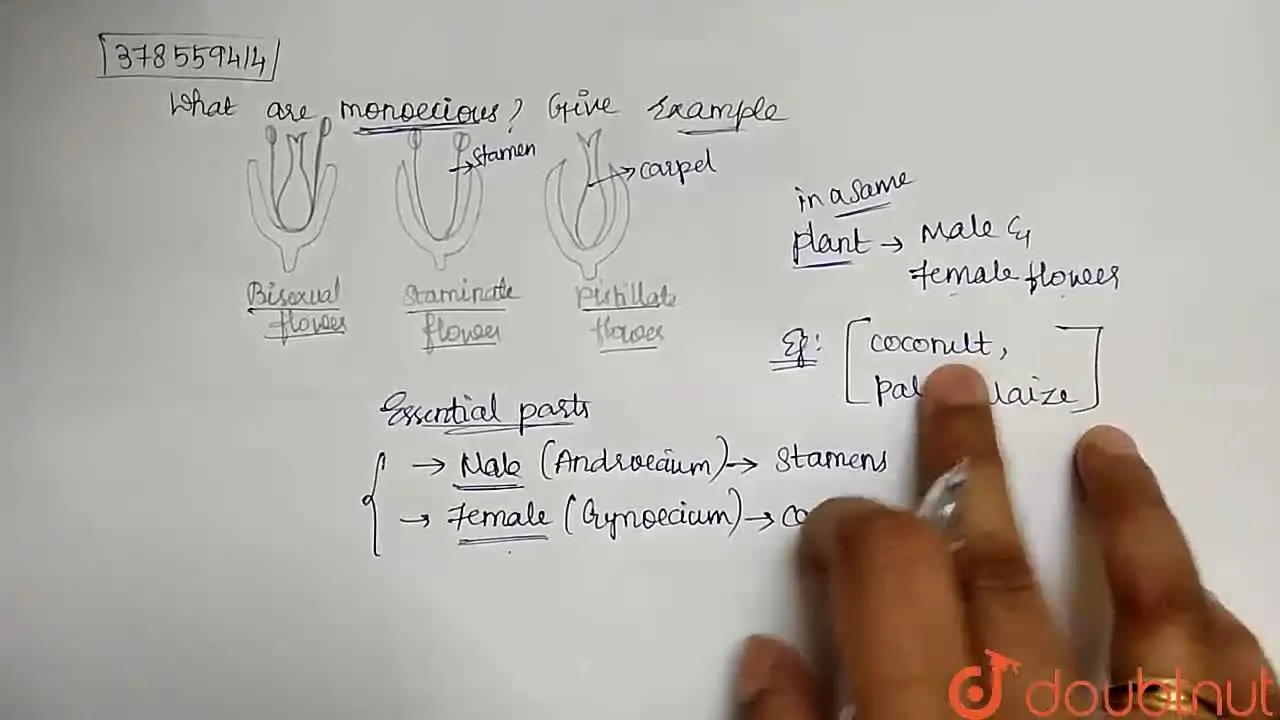 378559414
What are monoecious? Give Example
stamen
carpel
Bisexual
flower
Staminate
flower
Pistillate
flower
in a same
plant → Male &
Female flowers
Eg: [coconut,
Essential parts
→ Male (Androecium) → Stamens
→ Female (Gynoecium) →
doubtnut